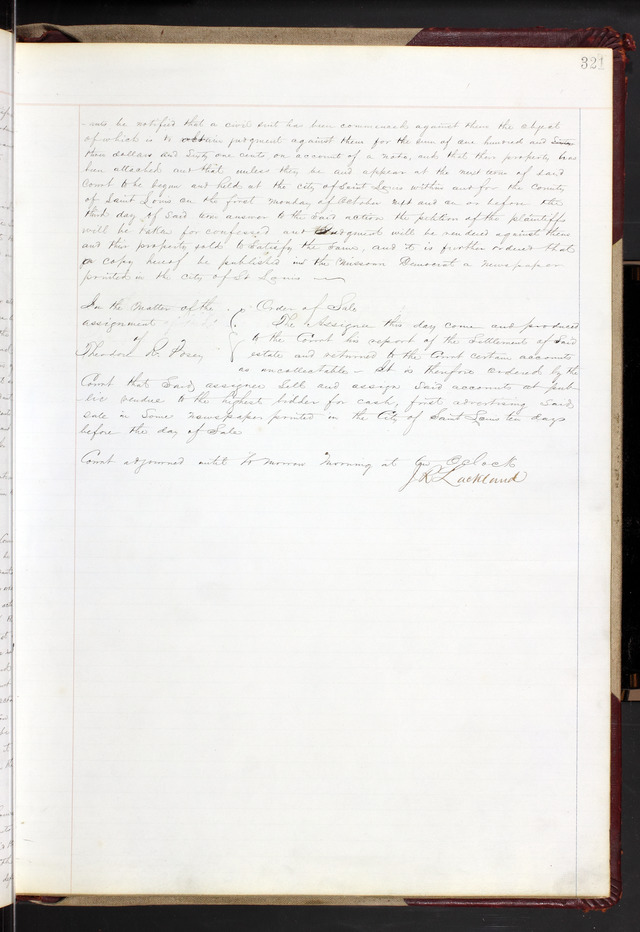 321
-ants be notified that a civil suit has been commenced against them the object
of which is to obtain judgment against them for the sum of one hundred and
three dollars and sixty one cents on account of a note, and that their property has
been attached and that unless they be and appear at the next term of said
Court to be begun and held at the City of Saint Louis within and for the County
of Saint Louis on the first Monday of October next and on or before the
third day of said term answer to the said action the petition of the plaintiffs
will be taken for confessed and Judgment will be rendered against them
and their property sold to satisfy the same, and it is further ordered that
a copy hereof be published in the Missouri Democrat a newspaper
printed in the city of St Louis
In the Matter of the Order of Sale
assignment The Assignee this day come and produced
of to the Court his report of the Settlement of Said
Theodore W. Posey estate and returned to the Court certain accounts
as uncollectable - It is therefore ordered by the
Court that Said assignee Sell and assign Said accounts at pub-
lic vendue to the highest bidder for cash, first advertising Said
sale in some newspaper printed in the City of Saint Louis ten days
before the day of Sale
Court adjourned until to morrow morning at O'Clock
J R Lackland